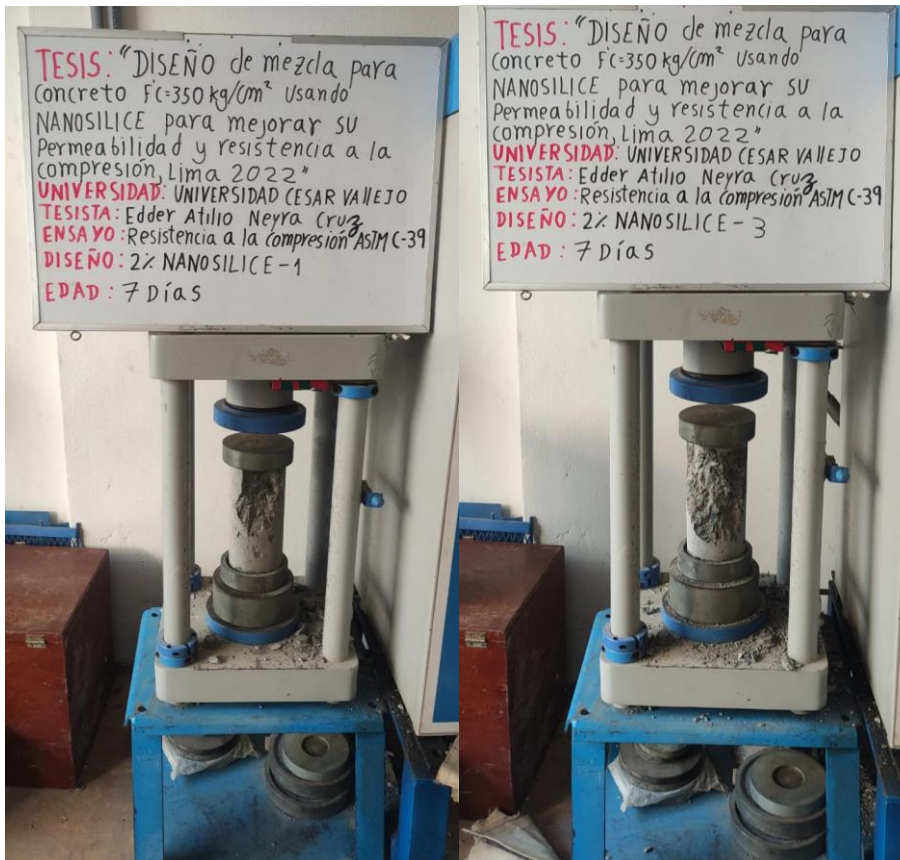 TESIS: "DISEÑO de mezcla para
Concreto F'C=350 kg/cm² Usando
NANOSILICE para mejorar su
Permeabilidad y resistencia a la
compresión, Lima 2022"
UNIVERSIDAD: UNIVERSIDAD CESAR VALLEJO
TESISTA: Edder Atilio Neyra Cruz
ENSAYO: Resistencia a la Compresión ASTM C-39
DISEÑO: 2% NANOSILICE-1
EDAD: 7 Días
TESIS: "DISEÑO de mezcla para
Concreto F'C=350 kg/cm² Usando
NANOSILICE para mejorar su
Permeabilidad y resistencia a la
compresión, Lima 2022"
UNIVERSIDAD: UNIVERSIDAD CESAR VALLEJO
TESISTA: Edder Atilio Neyra Cruz
ENSAYO: Resistencia a la Compresión ASTM C-39
DISEÑO: 2% NANOSILICE-3
EDAD: 7 Días